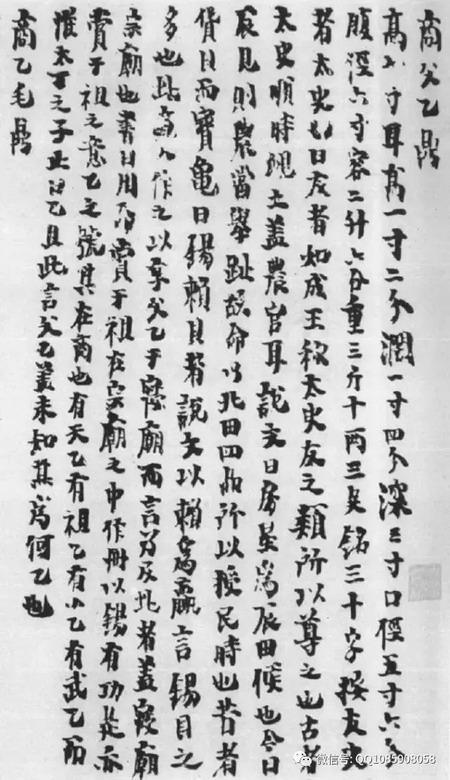 商父乙鼎
高六寸耳高一寸二分濶一寸四分深三寸口徑五寸六分
腹徑六寸容二升六合重三斤十兩三足銘三十字按友史
者太史也曰友者如成王稱太史友之類所以尊之也古者
太史順時覛土蓋農官耳說文曰房星為辰田候也今曰
辰見則農當舉趾故命以北田四品所以授民時也古者
貨貝而寶龜曰錫賴貝者說文以賴為贏言錫貝之
多也此商人作之以享父乙于寢廟而言乃及此者蓋寢廟
宗廟也書曰用命賞于祖在宗廟之中作冊以錫有功是亦
賞于祖之意乙之號其在商也有天乙有祖乙有小乙有武乙而
惟太丁之子止曰乙且此言父乙蓋未知其為何乙也
商乙毛鼎
微信号: QQ1085008058